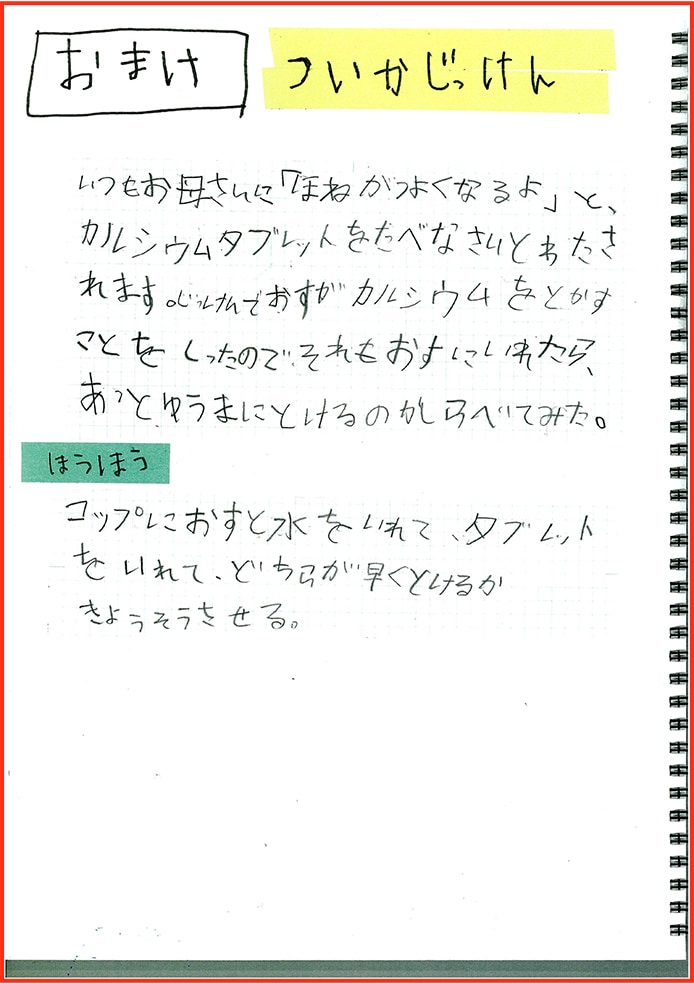 おまけ ついかじっけん
いつもお母さんに「ほねがつよくなるよ」と、
カルシウムタブレットをたべなさいとわたさ
れます。じっけんでおすがカルシウムをとかす
ことをしったので、それもおすにいれたら、
あっとゆうまにとけるのかしらべてみた。
ほうほう
コップにおすと水をいれて、タブレット
をいれて、どちらが早くとけるか
きょうそうさせる。